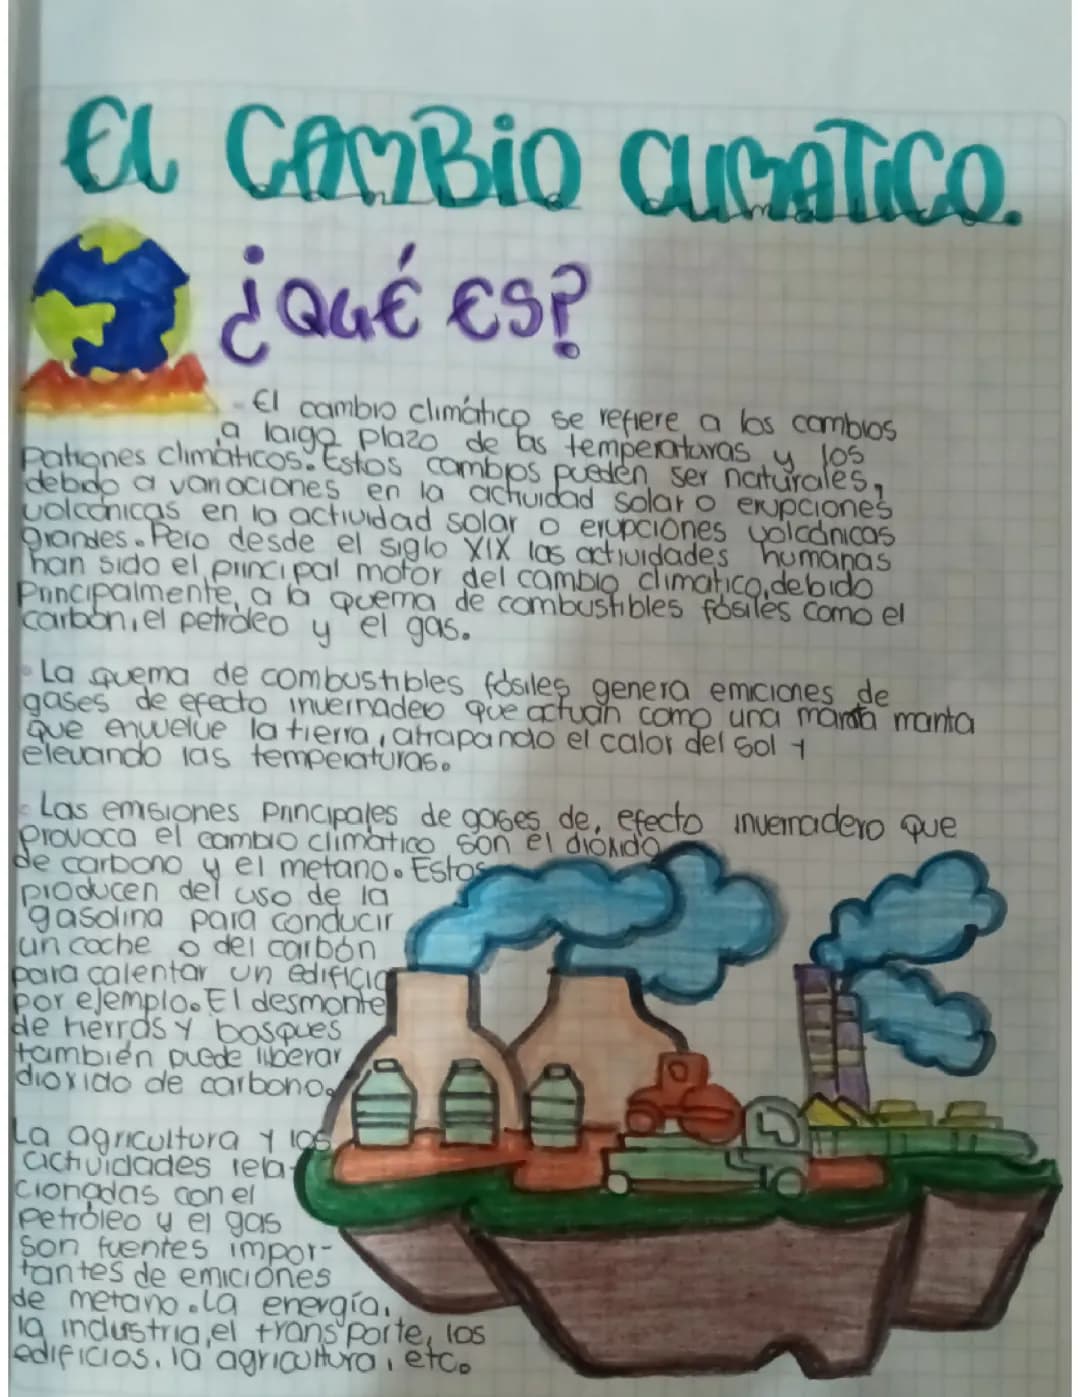 El CAMBiO CLIMATICO.
¿QUÉ ES?
El cambio climático se refiere a los cambios
a largo plazo de las temperaturas y los
patrones climáticos. Estos cambios pueden ser naturales,
debido a variaciones en la actividad solar o erupciones
volcánicas en la actividad solar o erupciones volcánicas
grandes. Pero desde el siglo XIX las actividades humanas
han sido el principal motor del cambio climatico, debido
Principalmente, a la quema de combustibles fósiles como el
carbón, el petróleo y el gas.
La quema de combustibles fósiles genera emiciones de
gases de efecto invernadero que actuan como una manta
que envuelve la tierra, atrapando el calor del sol y
elevando las temperaturas.
Las emisiones principales de gases de, efecto invernadero que
provoca el cambio climático son el dióxido
de carbono y el metano. Estos
producen del uso de la
gasolina para conducir
un coche o del carbón
para calentar un edificio
por ejemplo. El desmonte
de tierras y bosques
también puede liberar
dioxido de carbono.
La agricultura y las
actividades rela-
cionadas con el
petróleo y el gas
son fuentes impor-
tantes de emiciones
de metano. La energía,
la industria, el transporte, los
edificios, la agricultura, etc.